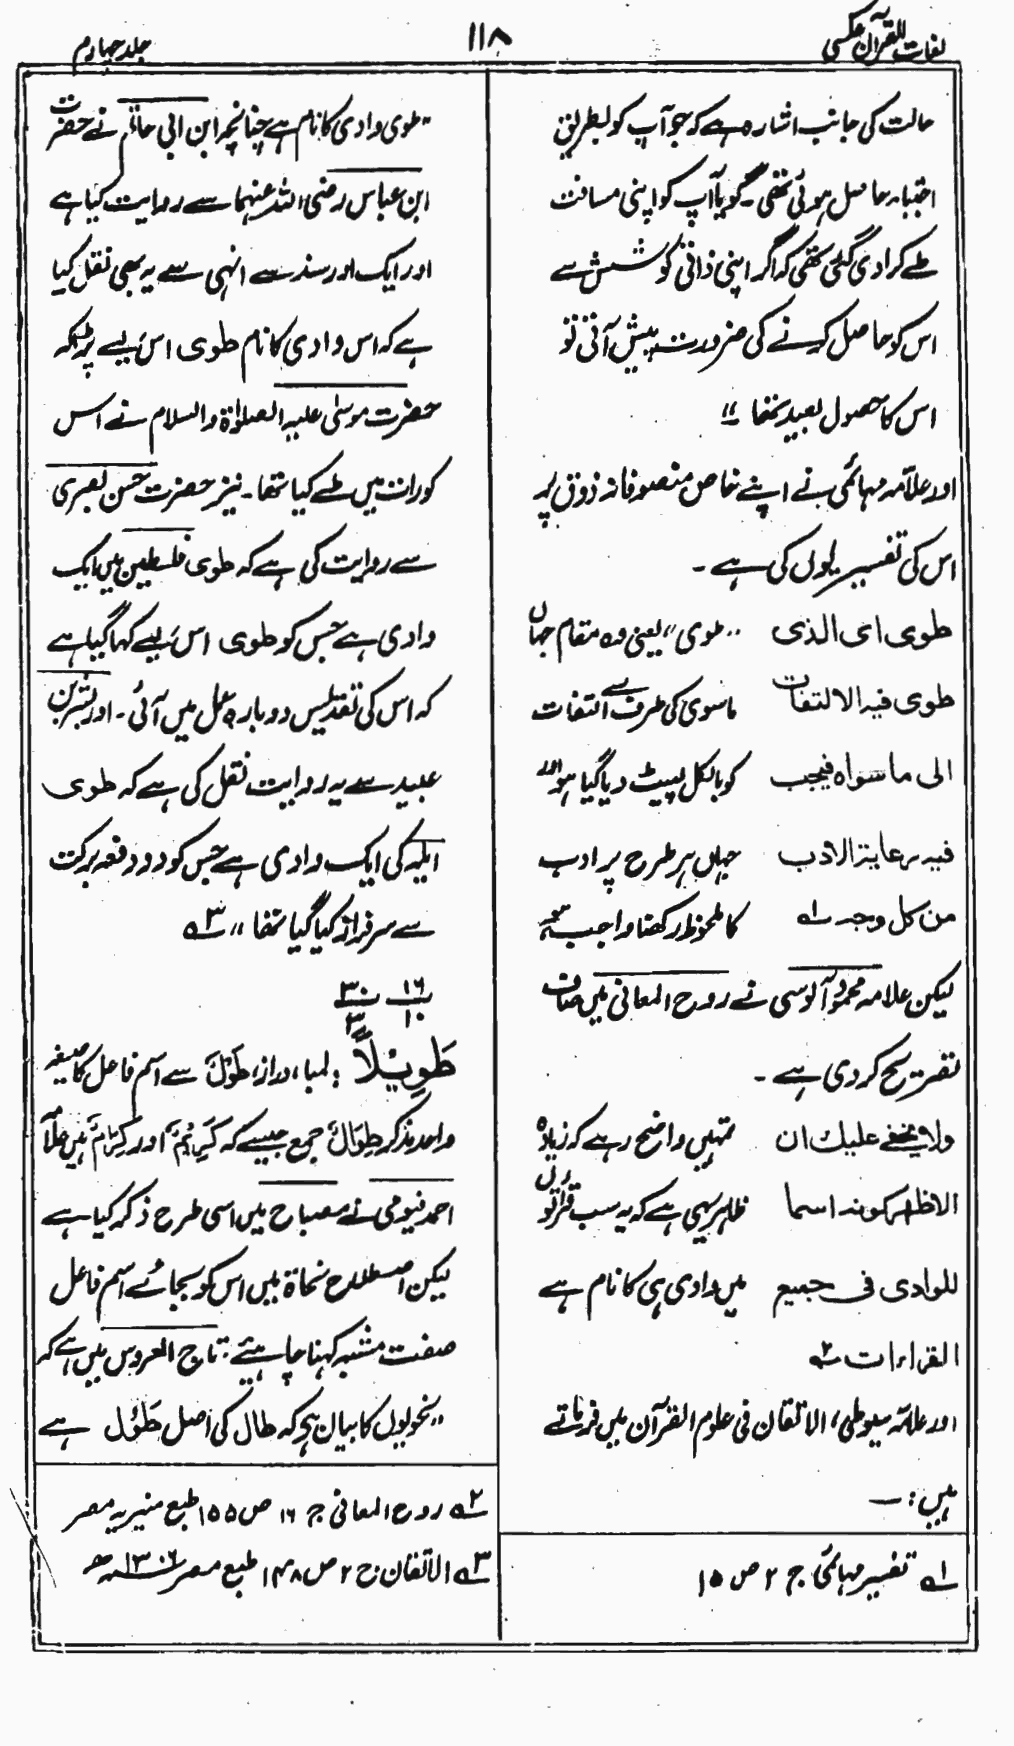 لغات القرآن عکسی
۱۱۸
جلد چہارم
حالت کی جانب اشارہ ہے کہ جو آپ کو بطریق
اجتباء حاصل ہوئی تھی۔ گویا آپ کو اپنی مسافت
طے کرادی گئی تھی کہ اگر اپنی ذاتی کوشش سے
اس کو حاصل کرنے کی ضرورت پیش آتی تو
اس کا حصول بعید تھا ۔"
اور علامہ مہائمی نے اپنے خاص متصوفانہ ذوق پر
اس کی تفسیر یوں کی ہے ۔
طوی ای الذی
طوی فیہ الالتفات
الی ما سواہ فیجب
فیہ رعایۃ الادب
من کل وجہ لہ۱
"طوی" یعنی وہ مقام جہاں
ماسوی کی طرف سے التفات
کو بالکل لپیٹ دیا گیا ہو اور
جہاں ہر طرح پر ادب
کا ملحوظ رکھنا واجب ہے
لیکن علامہ محمود آلوسی نے روح المعانی میں صاف
تصریح کردی ہے ۔
ولا یخفی علیك ان
الاظھر کونہ اسما
للوادی فی جمیع
القراءات ۲ہ
تمہیں واضح رہے کہ زیادہ
ظاہر یہی ہے کہ یہ سب قراتوں
میں وادی ہی کا نام ہے
اور علامہ سیوطی، الاتقان فی علوم القرآن میں فرماتے
ہیں :۔
۱ہ تفسیر مہائمی ج ۲ ص ۱۵
"طوی وادی کا نام ہے چنانچہ ابن ابی حاتم نے حضرت
ابن عباس رضی اللہ عنہما سے روایت کیا ہے
اور ایک اور سند سے انہی سے یہ بھی نقل کیا
ہے کہ اس وادی کا نام طوی اس لیے پڑا کہ
حضرت موسیٰ علیہ الصلوٰۃ والسلام نے اس
کو رات میں طے کیا تھا۔ نیز حضرت حسن بصری
سے روایت کی ہے کہ طوی فلسطین میں ایک
وادی ہے جس کو طوی اس لیے کہا گیا ہے
کہ اس کی تقدیس دوبارہ عمل میں آئی۔ اور بشر بن
عبید سے یہ روایت نقل کی ہے کہ طوی
ایلہ کی ایک وادی ہے جس کو دو دفعہ برکت
سے سرفراز کیا گیا تھا" ۳ہ
۱۶ ۳۰
۱۰ ۳
طَوِیْلاً : لمبا، دراز، طُوْلٌ سے اسم فاعل کا صیغہ
واحد مذکر طِوَالٌ جمع جیسے کہ کَرِیْمٌ اور کِرَامٌ ہیں علامہ
احمد فیومی نے مصباح میں اسی طرح ذکر کیا ہے
لیکن اصطلاح نحاۃ میں اس کو بجائے اسم فاعل
صفت مشبہ کہنا چاہیئے۔ تاج العروس میں ہے کہ
"نحویوں کا بیان ہے کہ طال کی اصل طَوُلَ ہے
۲ہ روح المعانی ج ۱۶ ص ۱۵۵ طبع منیریہ مصر
۳ہ الاتقان ج ۲ ص ۱۴۸ طبع مصر ۱۳۰۶ھ